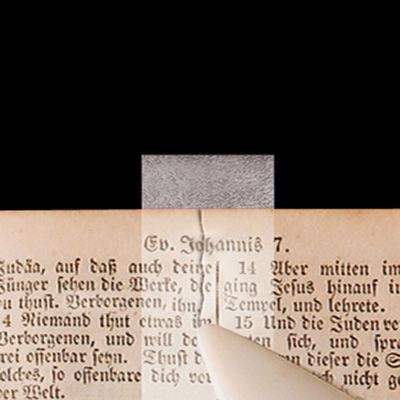 Ev. Johannis 7.
Judäa, auf daß auch deine
Jünger sehen die Werke, die
du thust. Verborgenen, ihn
4 Niemand thut etwas im
Verborgenen, und will do
frei offenbar seyn. Thust d
solches, so offenbare dich vor
der Welt.
14 Aber mitten im
ging Jesus hinauf in
Tempel, und lehrete.
15 Und die Juden ver
sich, und spra
dieser die S
nicht ge